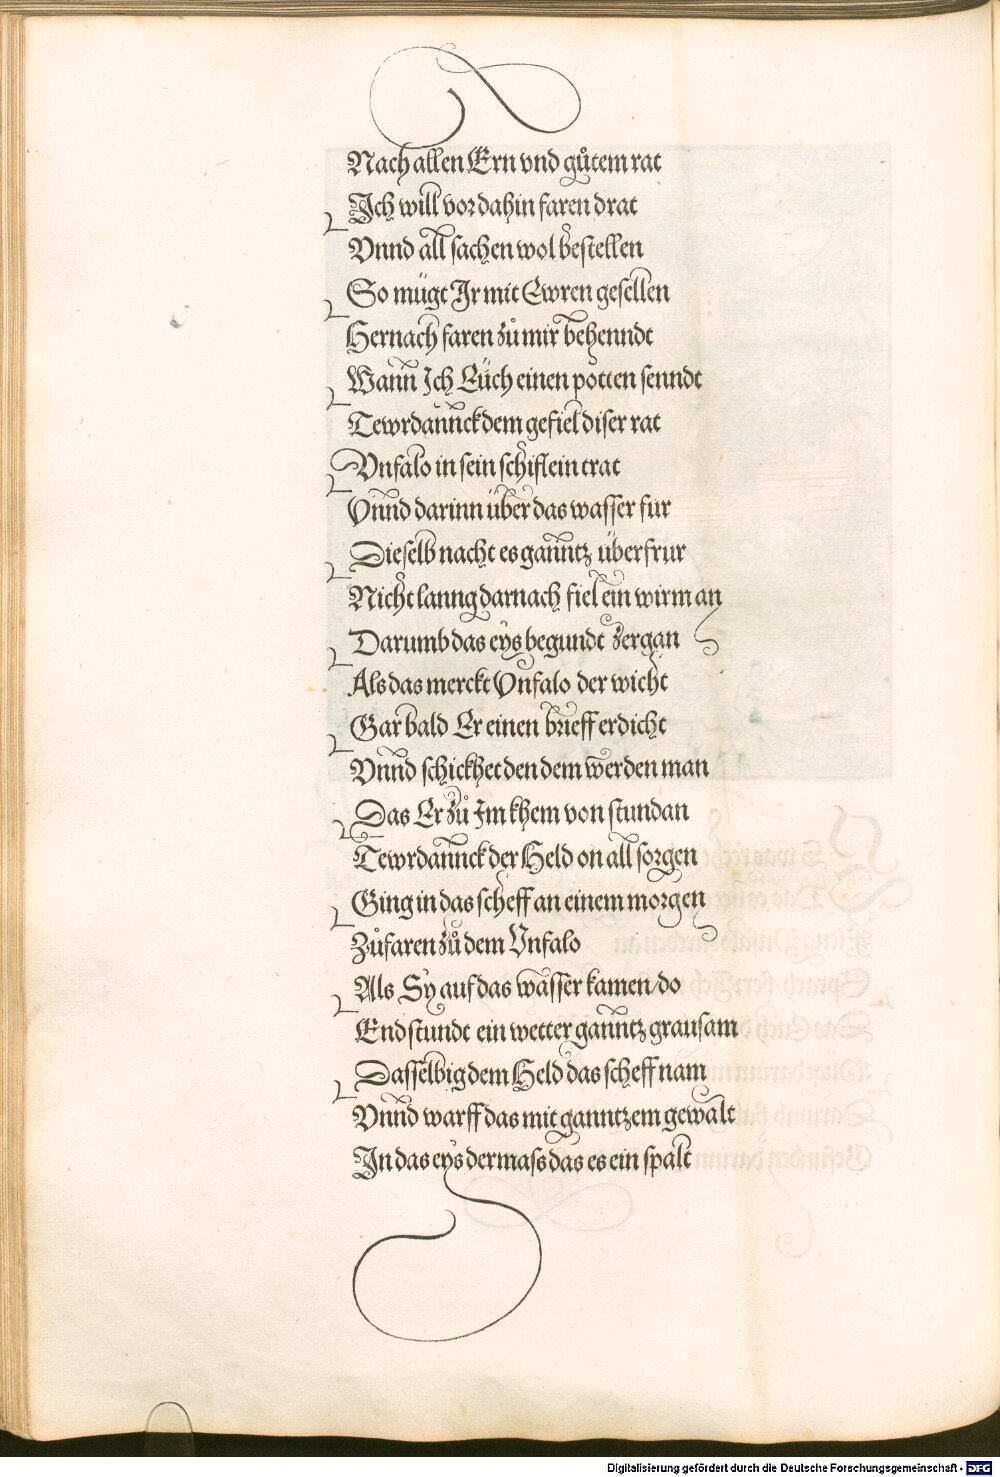 Nach allen Ern vnd gůtem rat
Ich will vor dahin faren drat
Vnnd all sachen wol bestellen
So mügt Ir mit Ewren gesellen
Hernach faren zů mir behenndt
Wann Ich Eüch einen potten senndt
Tewrdannck dem gefiel diser rat
Vnfalo in sein schiflein trat
Vnnd darinn über das wasser fur
Dieselb nacht es ganntz überfrur
Nicht lanng darnach fiel ein wirm an
Darumb das eys begundt zergan
Als das merckt Vnfalo der wicht
Gar bald Er einen brieff erdicht
Vnnd schickhet den dem werden man
Das Er zů Im khem von stundan
Tewrdannck der Held on all sorgen
Ging in das scheff an einem morgen
Zůfaren zů dem Vnfalo
Als Sy auf das wasser kamen/do
Endstundt ein wetter ganntz grausam
Dasselbig dem Held das scheff nam
Vnnd warff das mit ganntzem gewalt
In das eys dermass das es ein spalt
Digitalisierung gefördert durch die Deutsche Forschungsgemeinschaft - DFG